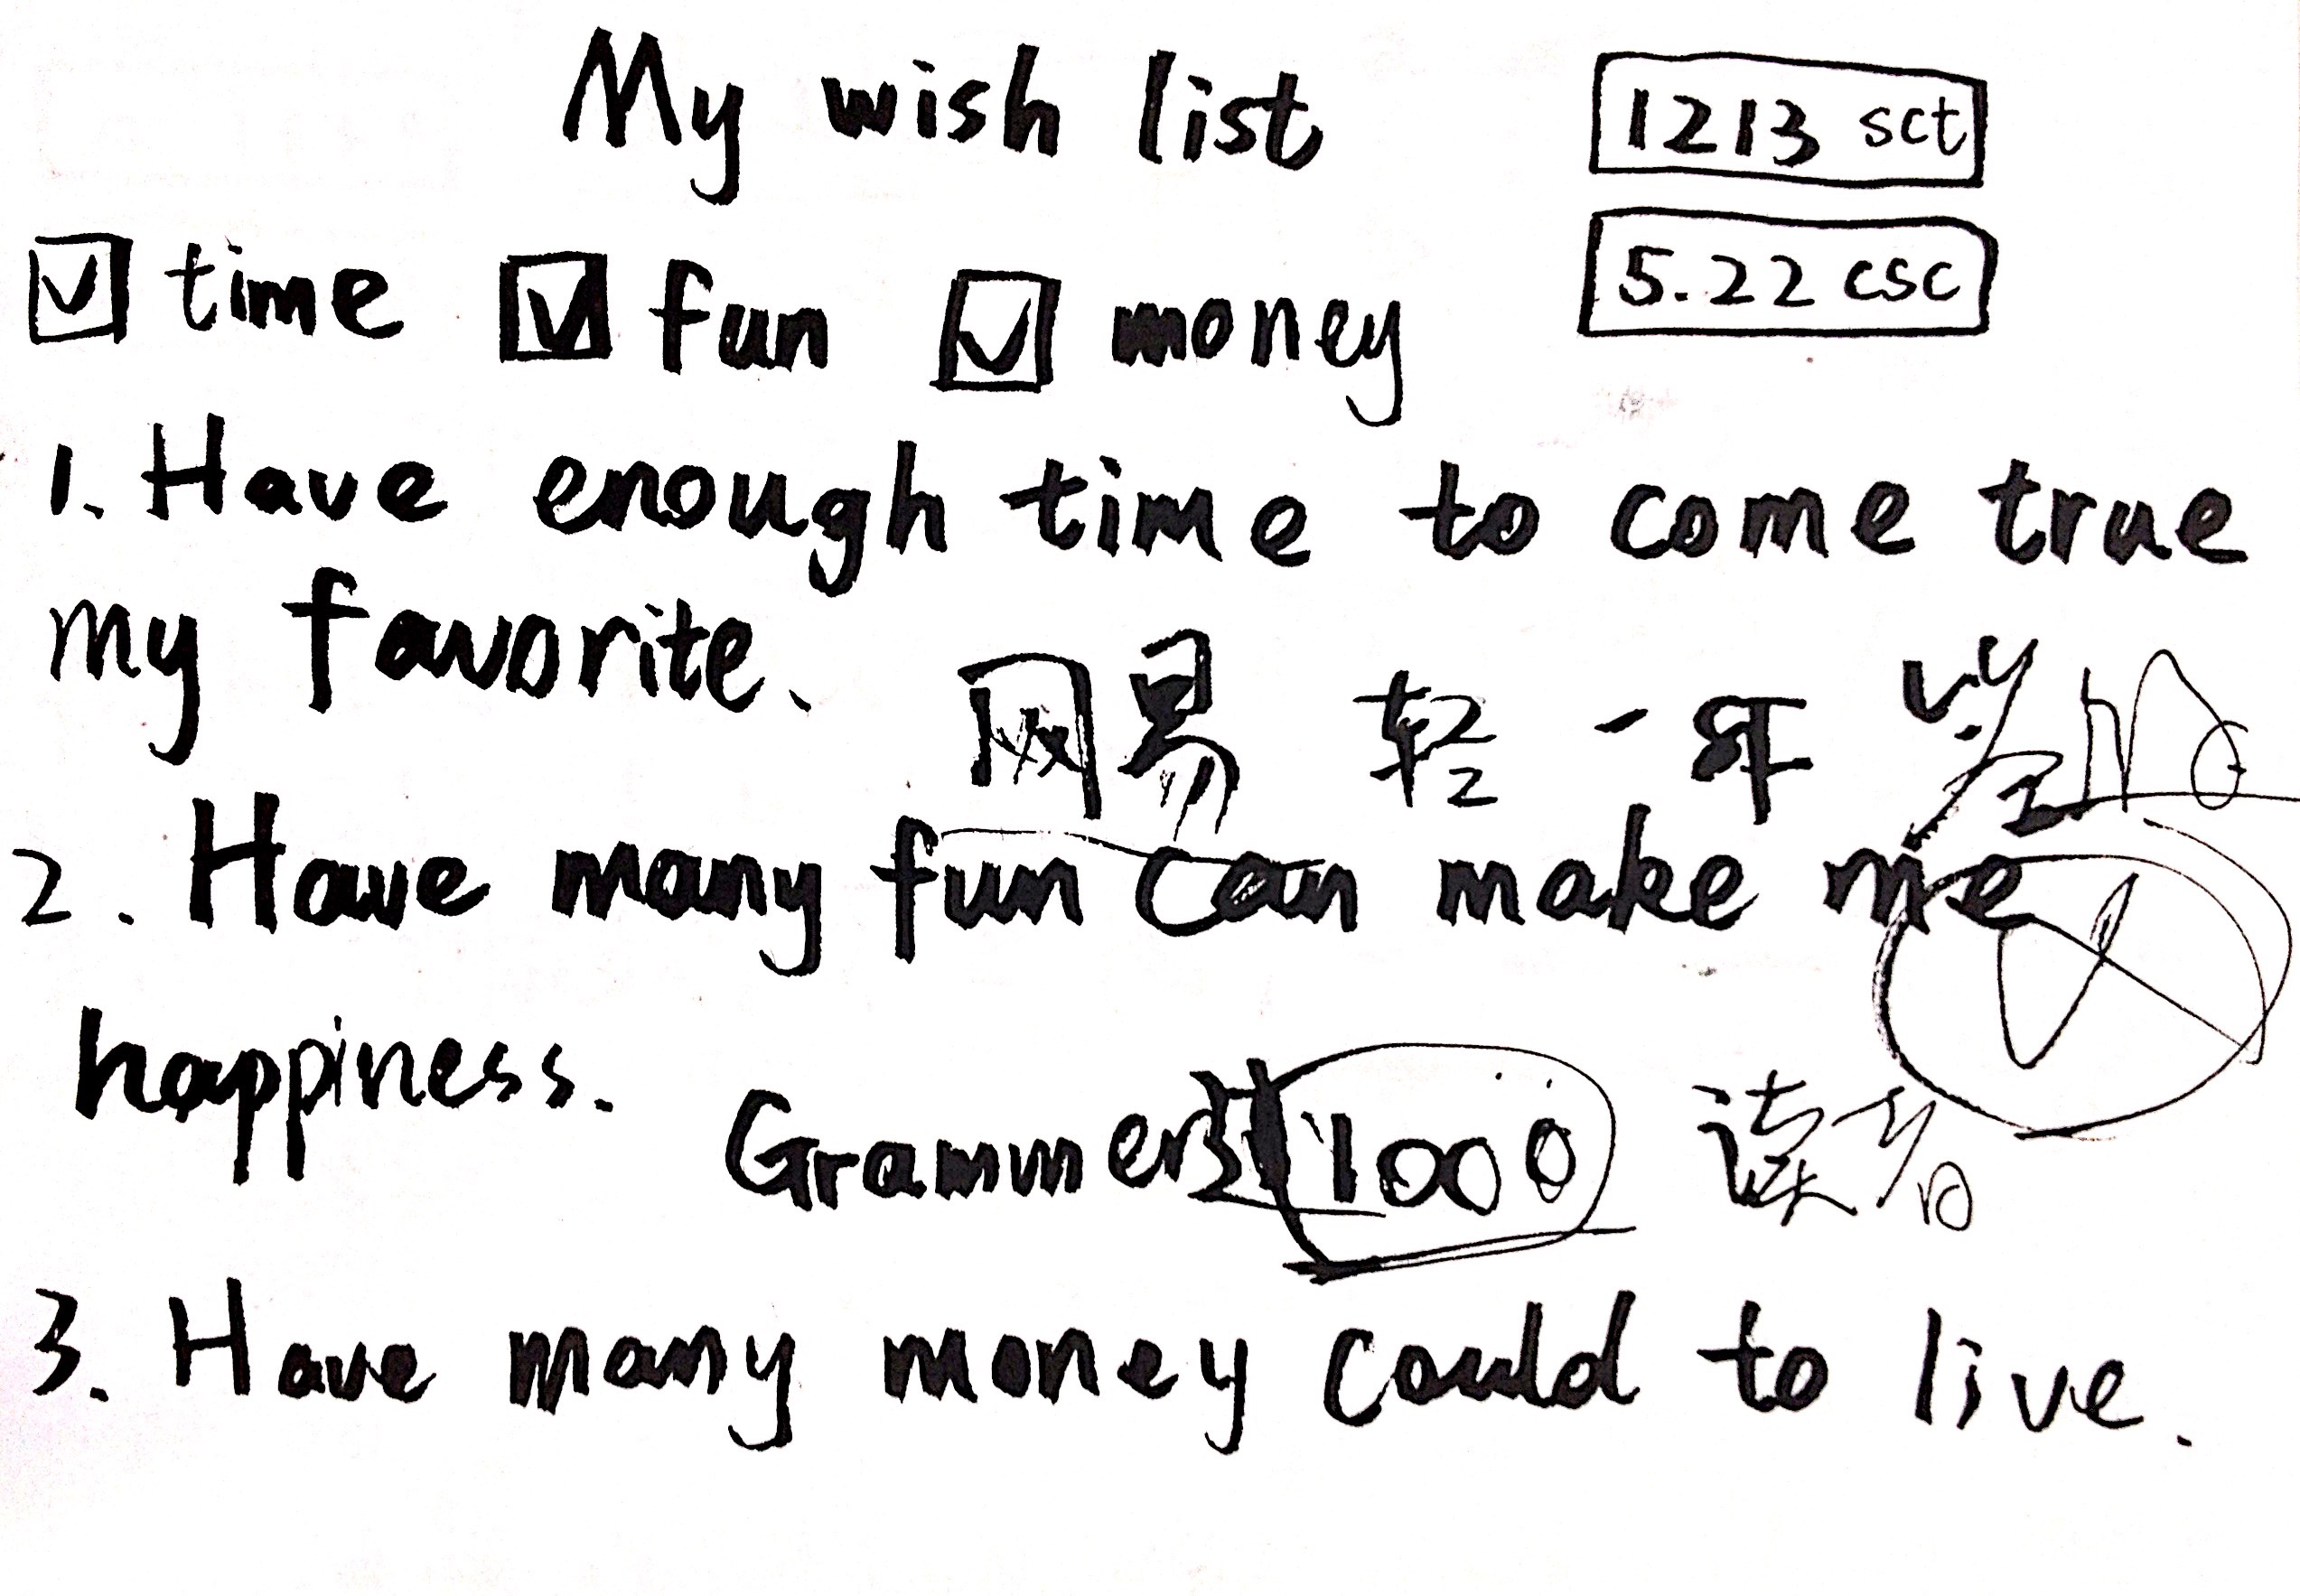 My wish list
1213 sct
5.22 csc
time fun money
1. Have enough time to come true
my favorite.
网易 轻一年
2. Have many fun can make me
happiness.
Grammer 1000 读
3. Have many money could to live.